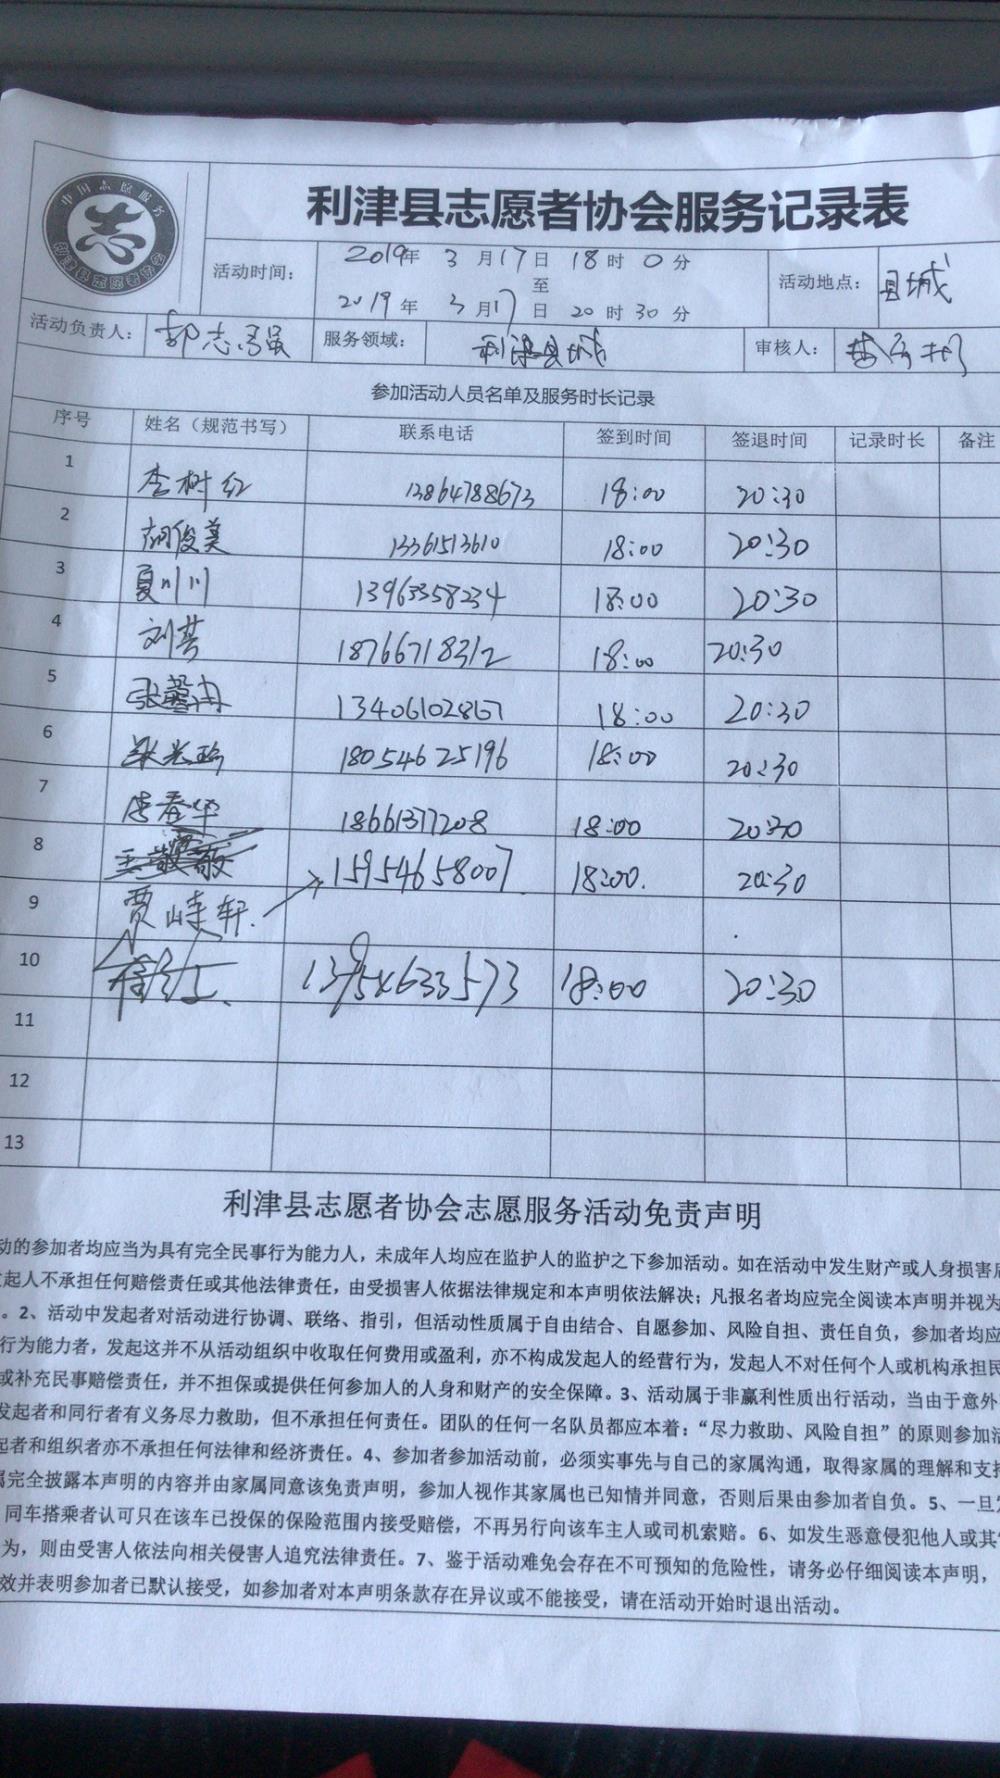 中国志愿服务
志
利津县志愿者协会服务记录表
活动时间： 2019年 3月17日 18时 0分
至
2019年 3月17日 20时30分
活动地点： 县城
活动负责人： 郭志强 服务领域： 利津县城 审核人：
参加活动人员名单及服务时长记录
序号 姓名（规范书写） 联系电话 签到时间 签退时间 记录时长 备注
1 李树红 13864788673 18:00 20:30
2 胡俊美 13361513610 18:00 20:30
3 夏川川 13963358234 18:00 20:30
4 刘芸 18766718312 18:00 20:30
5 13406102867 18:00 20:30
6 18054625196 18:00 20:30
7 李春华 18661377208 18:00 20:30
8 15954658007 18:00. 20:30
9 贾峰轩.
10 13954633573 18:00 20:30
11
12
13
利津县志愿者协会志愿服务活动免责声明
动的参加者均应当为具有完全民事行为能力人，未成年人均应在监护人的监护之下参加活动。如在活动中发生财产或人身损害后
起人不承担任何赔偿责任或其他法律责任，由受损害人依据法律规定和本声明依法解决；凡报名者均应完全阅读本声明并视为
。2、活动中发起者对活动进行协调、联络、指引，但活动性质属于自由结合、自愿参加、风险自担、责任自负，参加者均应
行为能力者，发起这并不从活动组织中收取任何费用或盈利，亦不构成发起人的经营行为，发起人不对任何个人或机构承担民
或补充民事赔偿责任，并不担保或提供任何参加人的人身和财产的安全保障。3、活动属于非赢利性质出行活动，当由于意外
发起者和同行者有义务尽力救助，但不承担任何责任。团队的任何一名队员都应本着：“尽力救助、风险自担”的原则参加活
起者和组织者亦不承担任何法律和经济责任。4、参加者参加活动前，必须实事先与自己的家属沟通，取得家属的理解和支持
属完全披露本声明的内容并由家属同意该免责声明，参加人视作其家属也已知情并同意，否则后果由参加者自负。5、一旦
同车搭乘者认可只在该车已投保的保险范围内接受赔偿，不再另行向该车主人或司机索赔。6、如发生恶意侵犯他人或其
为，则由受害人依法向相关侵害人追究法律责任。7、鉴于活动难免会存在不可预知的危险性，请务必仔细阅读本声明，
效并表明参加者已默认接受，如参加者对本声明条款存在异议或不能接受，请在活动开始时退出活动。